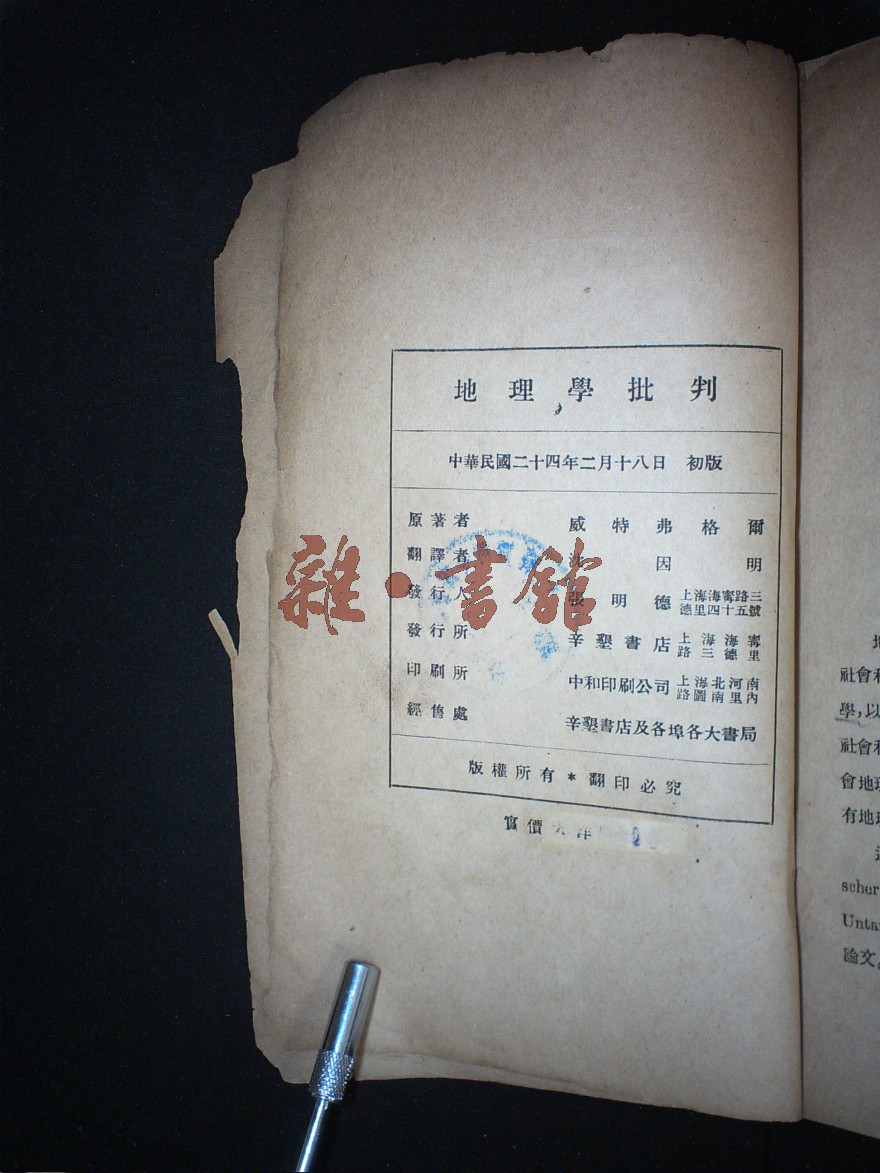 地理學批判
中華民國二十四年二月十八日 初版
原著者 威特弗格爾
翻譯者 因明
發行人 張明德 上海海甯路三德里四十五號
發行所 辛墾書店 上海海甯路三德里
印刷所 中和印刷公司 上海北河南路圖南里內
經售處 辛墾書店及各埠各大書局
版權所有 * 翻印必究
實價大洋
雜·書館
社會
學,以
社會
會地
有地
scher
Unta
論文